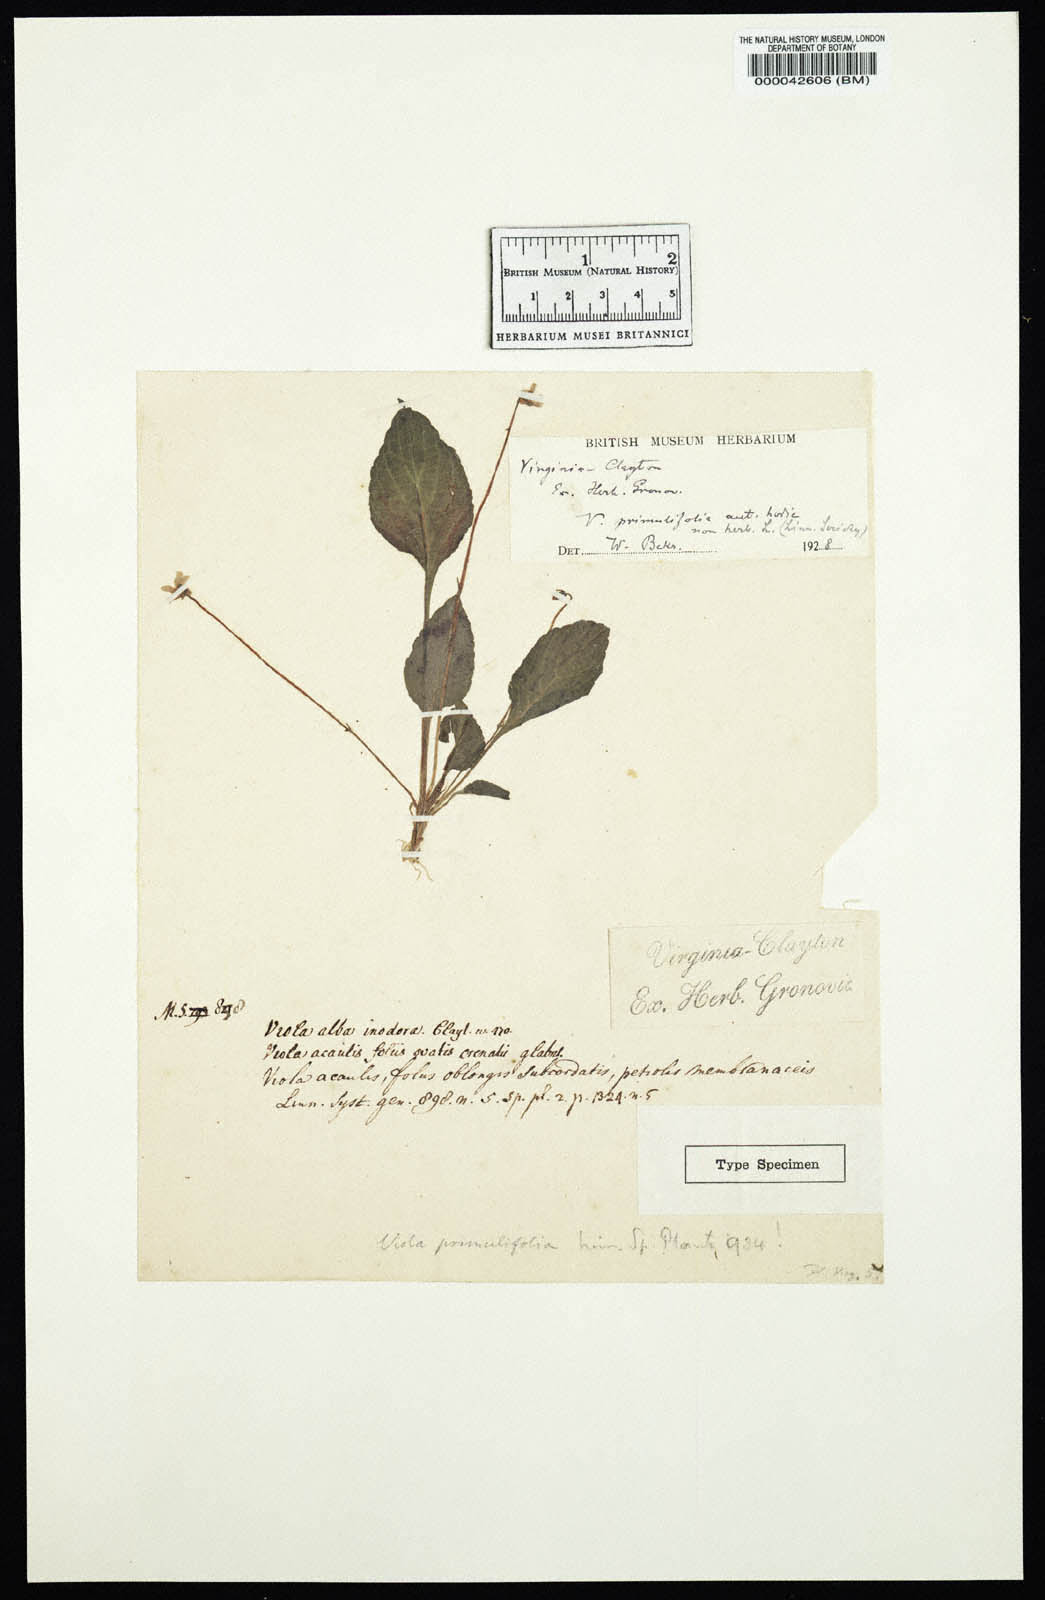 THE NATURAL HISTORY MUSEUM, LONDON
DEPARTMENT OF BOTANY
000042606 (BM)
1 2
BRITISH MUSEUM (NATURAL HISTORY)
1 2 3 4 5
HERBARIUM MUSEI BRITANNICI
BRITISH MUSEUM HERBARIUM
Virginia - Clayton
Ex. Herb. Gronov.
V. primulifolia auct. hodie
non herb. L. (Linn. Society)
DET. W. Bckr. 1928
Virginia - Clayton
Ex. Herb. Gronovii
898
Viola alba inodora. Clayt. n.
Viola acaulis foliis ovatis crenatis glabris.
Viola acaulis, foliis oblongis subcordatis, petiolis membranaceis
Linn. Syst. gen. 898. n. 5. Sp. pl. 2. p. 1324. n. 5
Type Specimen
Viola primulifolia Linn. Sp. Plant. 934!